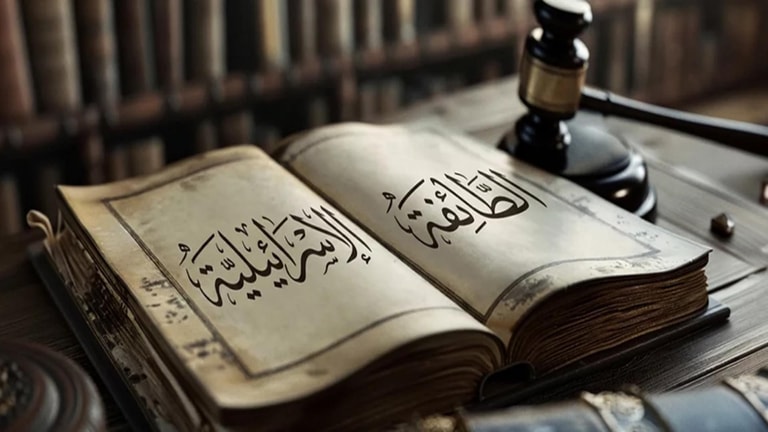 الطَّائِفَةُ
الإِسْرَائِيلِيَّةُ